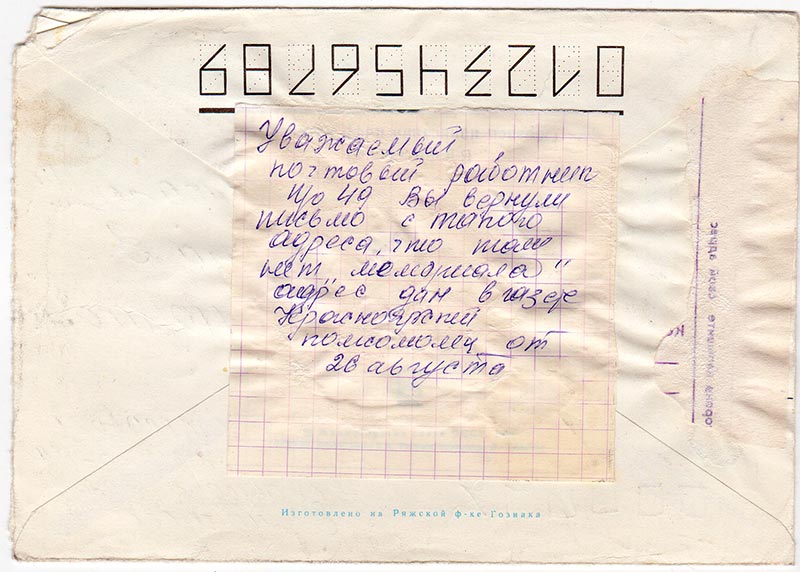 0123456789
Уважаемый
почтовый работник
п/о 49 Вы вернули
письмо с такого
адреса, что там
нет "мемориала"
адрес дан в газете
Красноярский
комсомолец от
26 августа
Изготовлено на Ряжской ф-ке Гознака
напишите свой адрес